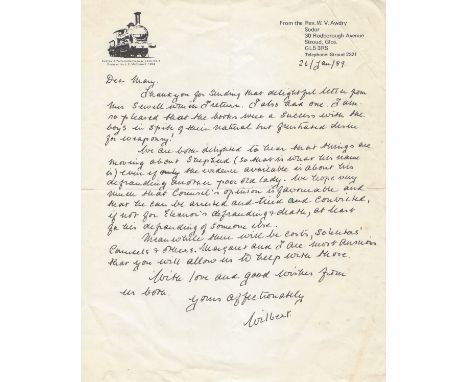 From the Rev. W. V. Awdry
Sodor
30 Rodborough Avenue
Stroud, Glos.
GL5 3RS
Telephone Stroud 2321
26/Jan/89
Dear Mary,
Thank you for sending that delightful letter from
Mrs Sewell which I return. I also had one. I am
so pleased that the books were a success with the
boys in spite of their natural but frustrated desire
for weaponry.
We are both delighted to hear that things are
moving about Shepherd (so that is what his name
is) even if only the evidence available is about his
defrauding another poor old lady. We hope very
much that Counsel's opinion is favourable and
that he can be arrested and tried and convicted,
if not for Eleanor's defrauding & death, at least
for his defrauding of someone else.
Meanwhile there will be costs, Solicitors'
Counsel's & others. Margaret and I are most anxious
that you will allow us to help with those.
With love and good wishes from
us both
Yours affectionately
Wilbert